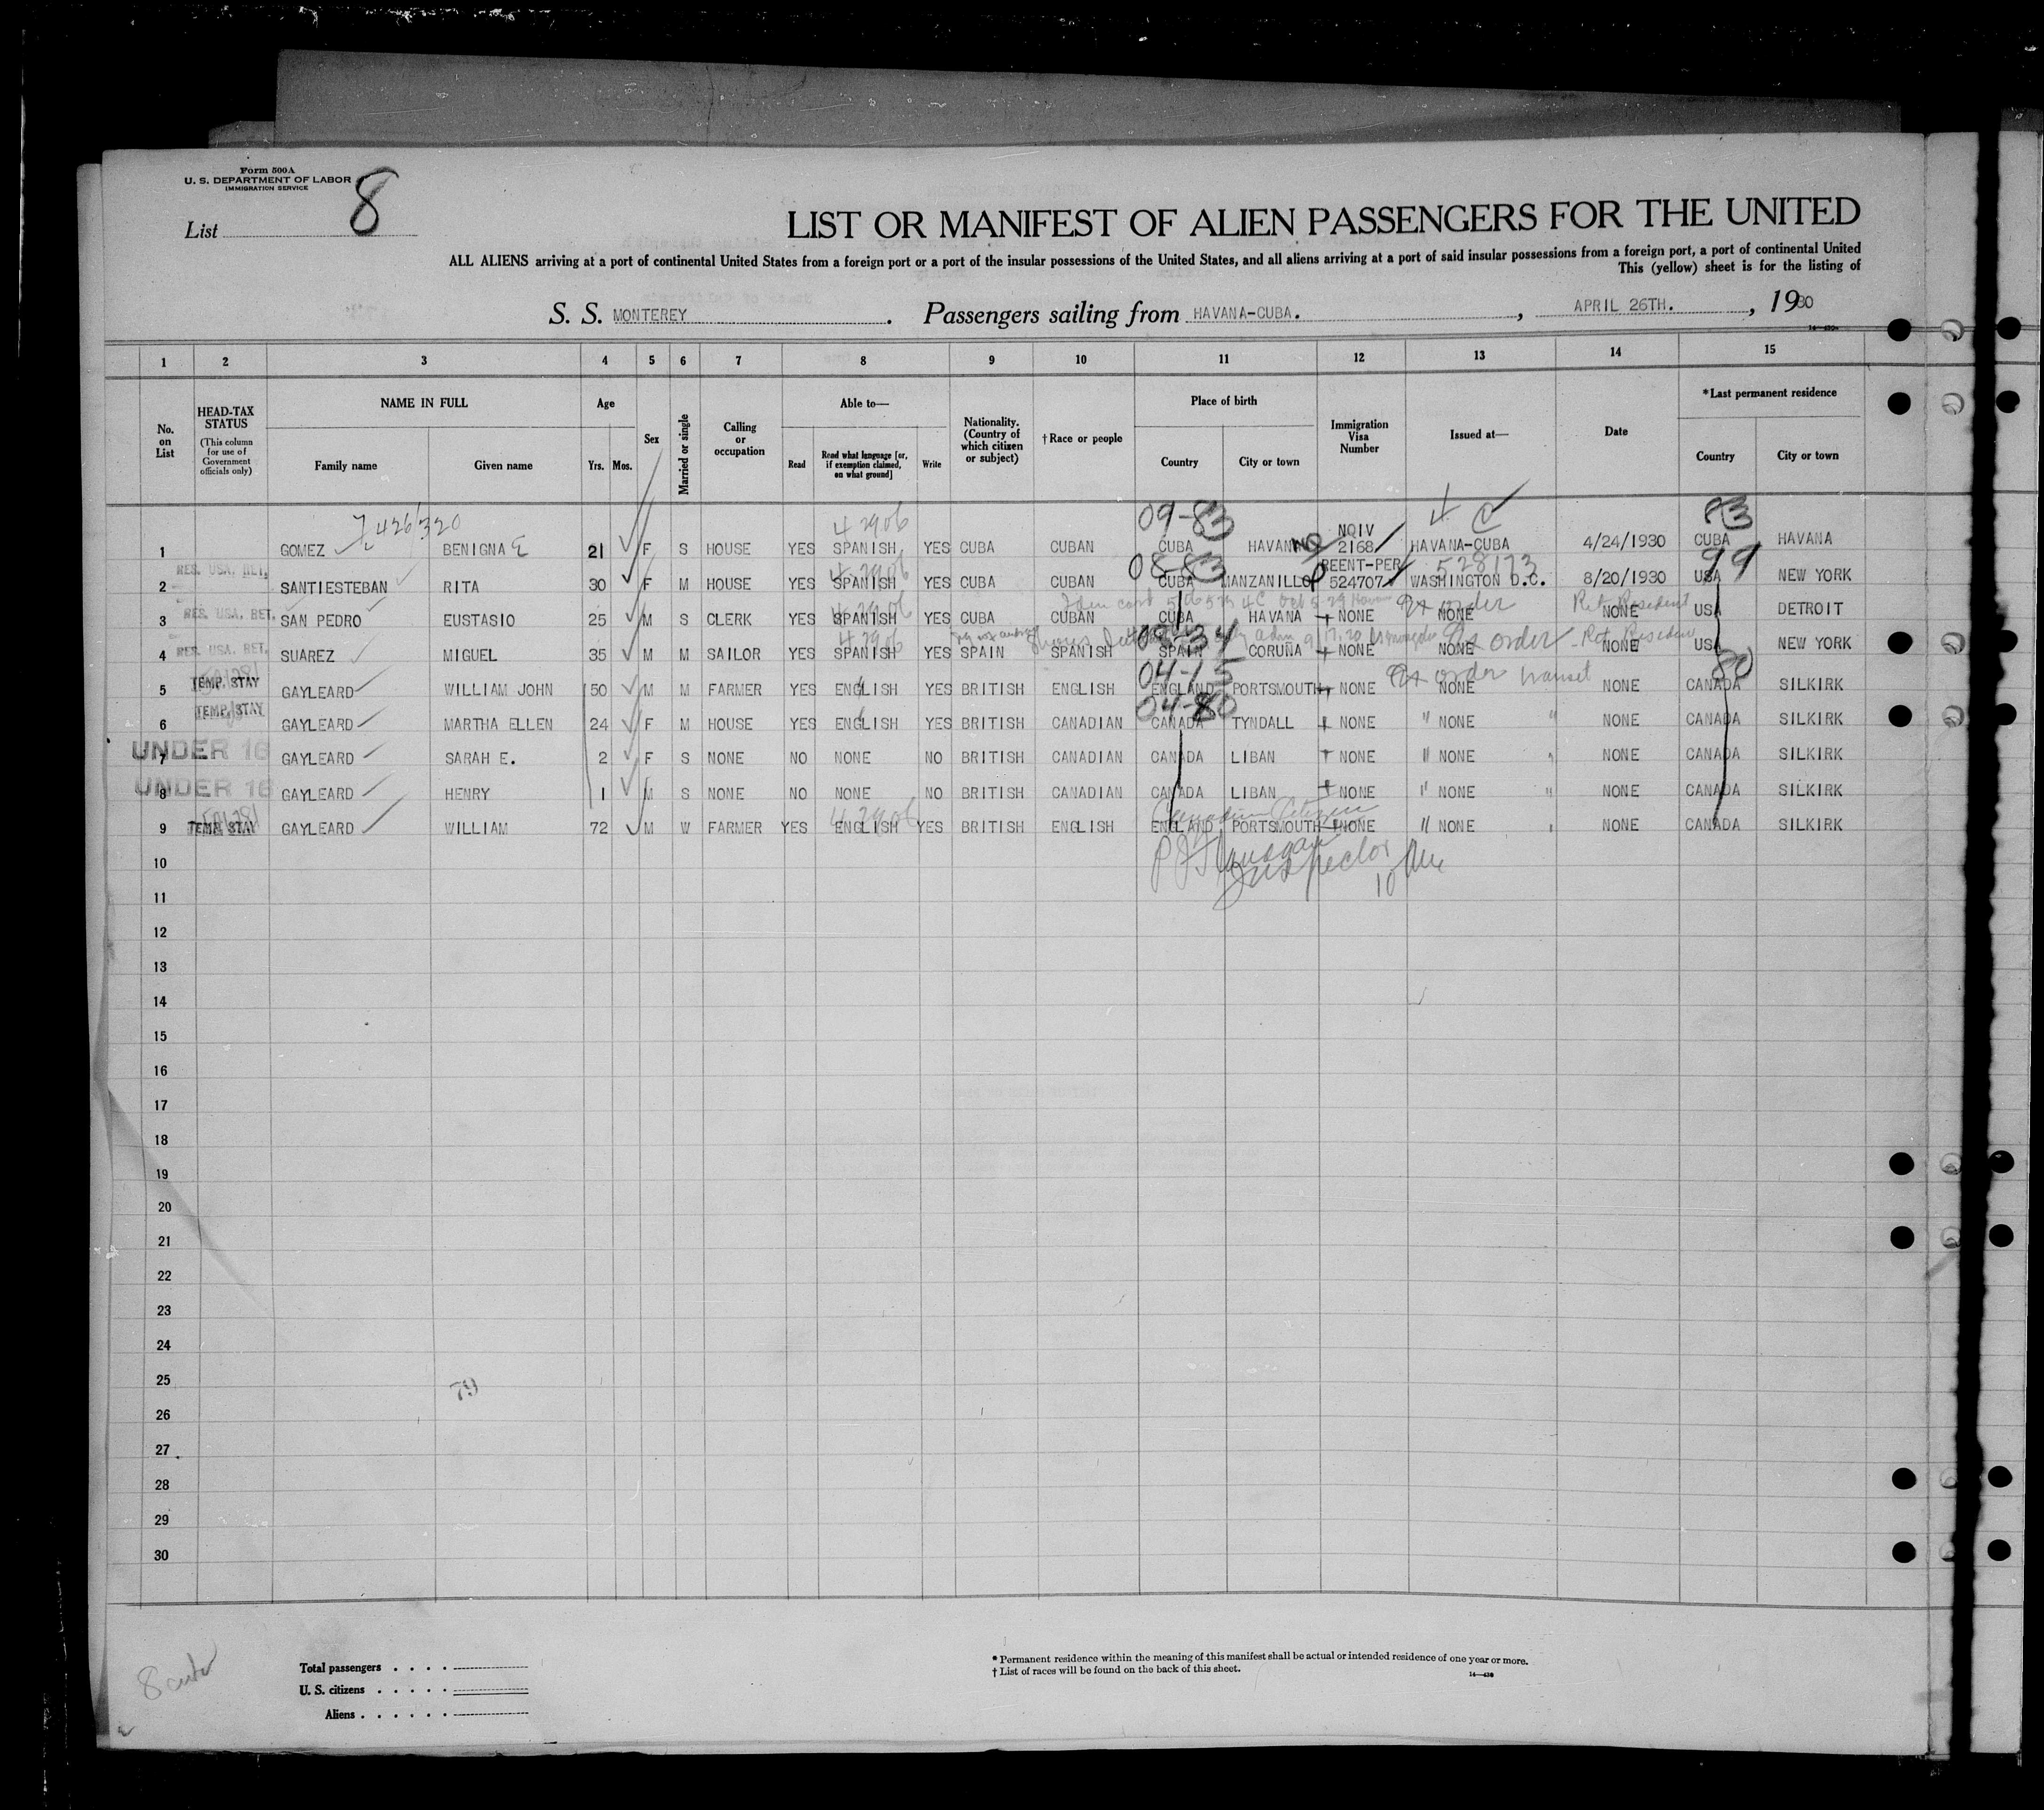 Form 500A
U. S. DEPARTMENT OF LABOR
IMMIGRATION SERVICE
List 8
LIST OR MANIFEST OF ALIEN PASSENGERS FOR THE UNITED
ALL ALIENS arriving at a port of continental United States from a foreign port or a port of the insular possessions of the United States, and all aliens arriving at a port of said insular possessions from a foreign port, a port of continental United
This (yellow) sheet is for the listing of
S. S. MONTEREY. Passengers sailing from HAVANA-CUBA. , APRIL 26TH. , 1930
1 2 3 4 5 6 7 8 9 10 11 12 13 14 15
No. on List
HEAD-TAX STATUS (This column for use of Government officials only)
NAME IN FULL
Family name Given name
Age
Yrs. Mos.
Sex
Married or single
Calling or occupation
Able to—
Read Read what language [or, if exemption claimed, on what ground] Write
Nationality. (Country of which citizen or subject)
†Race or people
Place of birth
Country City or town
Immigration Visa Number
Issued at—
Date
*Last permanent residence
Country City or town
426/320 42906 09-83 NQIV C 83
1 GOMEZ BENIGNA E 21 F S HOUSE YES SPANISH YES CUBA CUBAN CUBA HAVANA NQ 2168 HAVANA-CUBA 4/24/1930 CUBA HAVANA
RES. USA. RET. 42906 08-83 REENT-PER 528173 99
2 SANTIESTEBAN RITA 30 F M HOUSE YES SPANISH YES CUBA CUBAN CUBA MANZANILLO 524707 WASHINGTON D.C. 8/20/1930 USA NEW YORK
RES. USA. RET. 42906 Ex order Ret Resident
3 SAN PEDRO EUSTASIO 25 M S CLERK YES SPANISH YES CUBA CUBAN CUBA HAVANA NONE NONE NONE USA DETROIT
RES. USA. RET. 42906 09-34 Ex order Ret Resident
4 SUAREZ MIGUEL 35 M M SAILOR YES SPANISH YES SPAIN SPANISH SPAIN CORUÑA NONE NONE NONE USA NEW YORK
TEMP. STAY 04-15 Ex order transit 80
5 GAYLEARD WILLIAM JOHN 50 M M FARMER YES ENGLISH YES BRITISH ENGLISH ENGLAND PORTSMOUTH NONE NONE NONE CANADA SILKIRK
TEMP. STAY 04-80
6 GAYLEARD MARTHA ELLEN 24 F M HOUSE YES ENGLISH YES BRITISH CANADIAN CANADA TYNDALL NONE " NONE " NONE CANADA SILKIRK
UNDER 16
7 GAYLEARD SARAH E. 2 F S NONE NO NONE NO BRITISH CANADIAN CANADA LIBAN NONE " NONE " NONE CANADA SILKIRK
UNDER 16
8 GAYLEARD HENRY 1 M S NONE NO NONE NO BRITISH CANADIAN CANADA LIBAN NONE " NONE " NONE CANADA SILKIRK
42906 Canadian Citizen
9 TEMP. STAY GAYLEARD WILLIAM 72 M W FARMER YES ENGLISH YES BRITISH ENGLISH ENGLAND PORTSMOUTH NONE " NONE " NONE CANADA SILKIRK
10
Inspector
11
12
13
14
15
16
17
18
19
20
21
22
23
24
25
79
26
27
28
29
30
Total passengers . . . .
U. S. citizens . . . . .
Aliens . . . . . .
* Permanent residence within the meaning of this manifest shall be actual or intended residence of one year or more.
† List of races will be found on the back of this sheet.
14—430